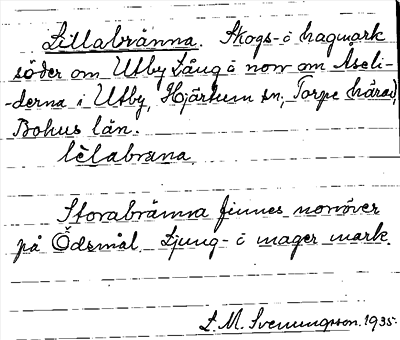 Lillabränna. Skogs- o hagmark
söder om Utby Läng o norr om Åseli-
-derna i Utby, Hjärtum sn, Torpe härad,
Bohus län.
lèlabrana
Storabränna finnes norröver
på Ödsmål. Ljung- o mager mark.
L. M. Svenungsson. 1935.